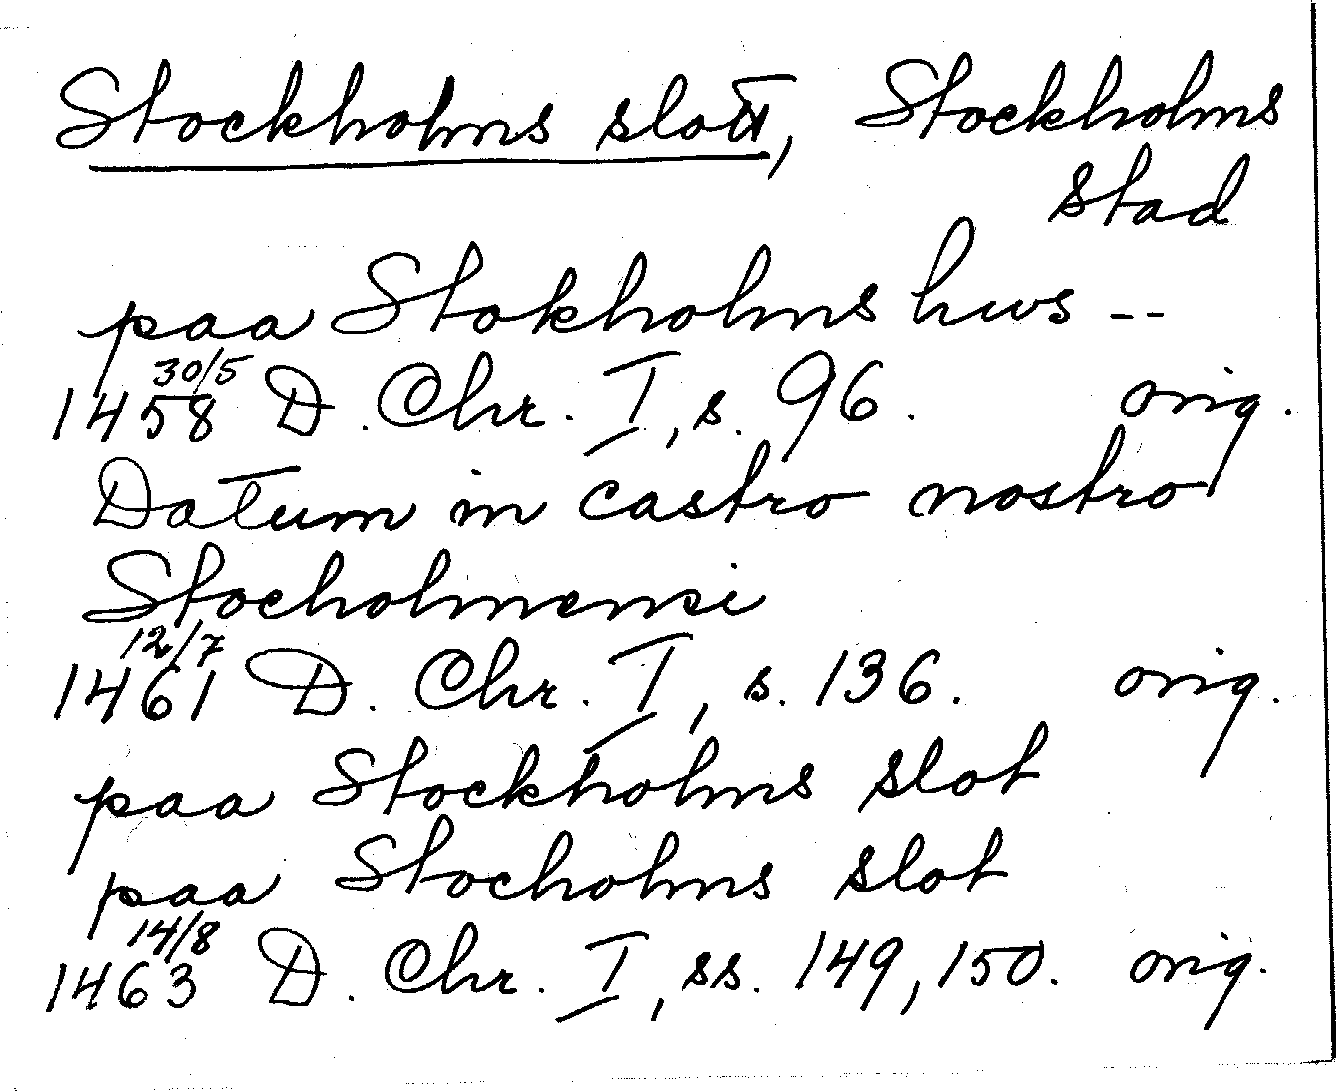 Stockholms slott, Stockholms
stad
paa Stokholms hws --
30/5
1458 D. Chr. I, s. 96. orig.
Datum in castro nostro
Stocholmensi
12/7
1461 D. Chr. I, s. 136. orig.
paa Stockholms slot
paa Stocholms slot
14/8
1463 D. Chr. I, ss. 149, 150. orig.